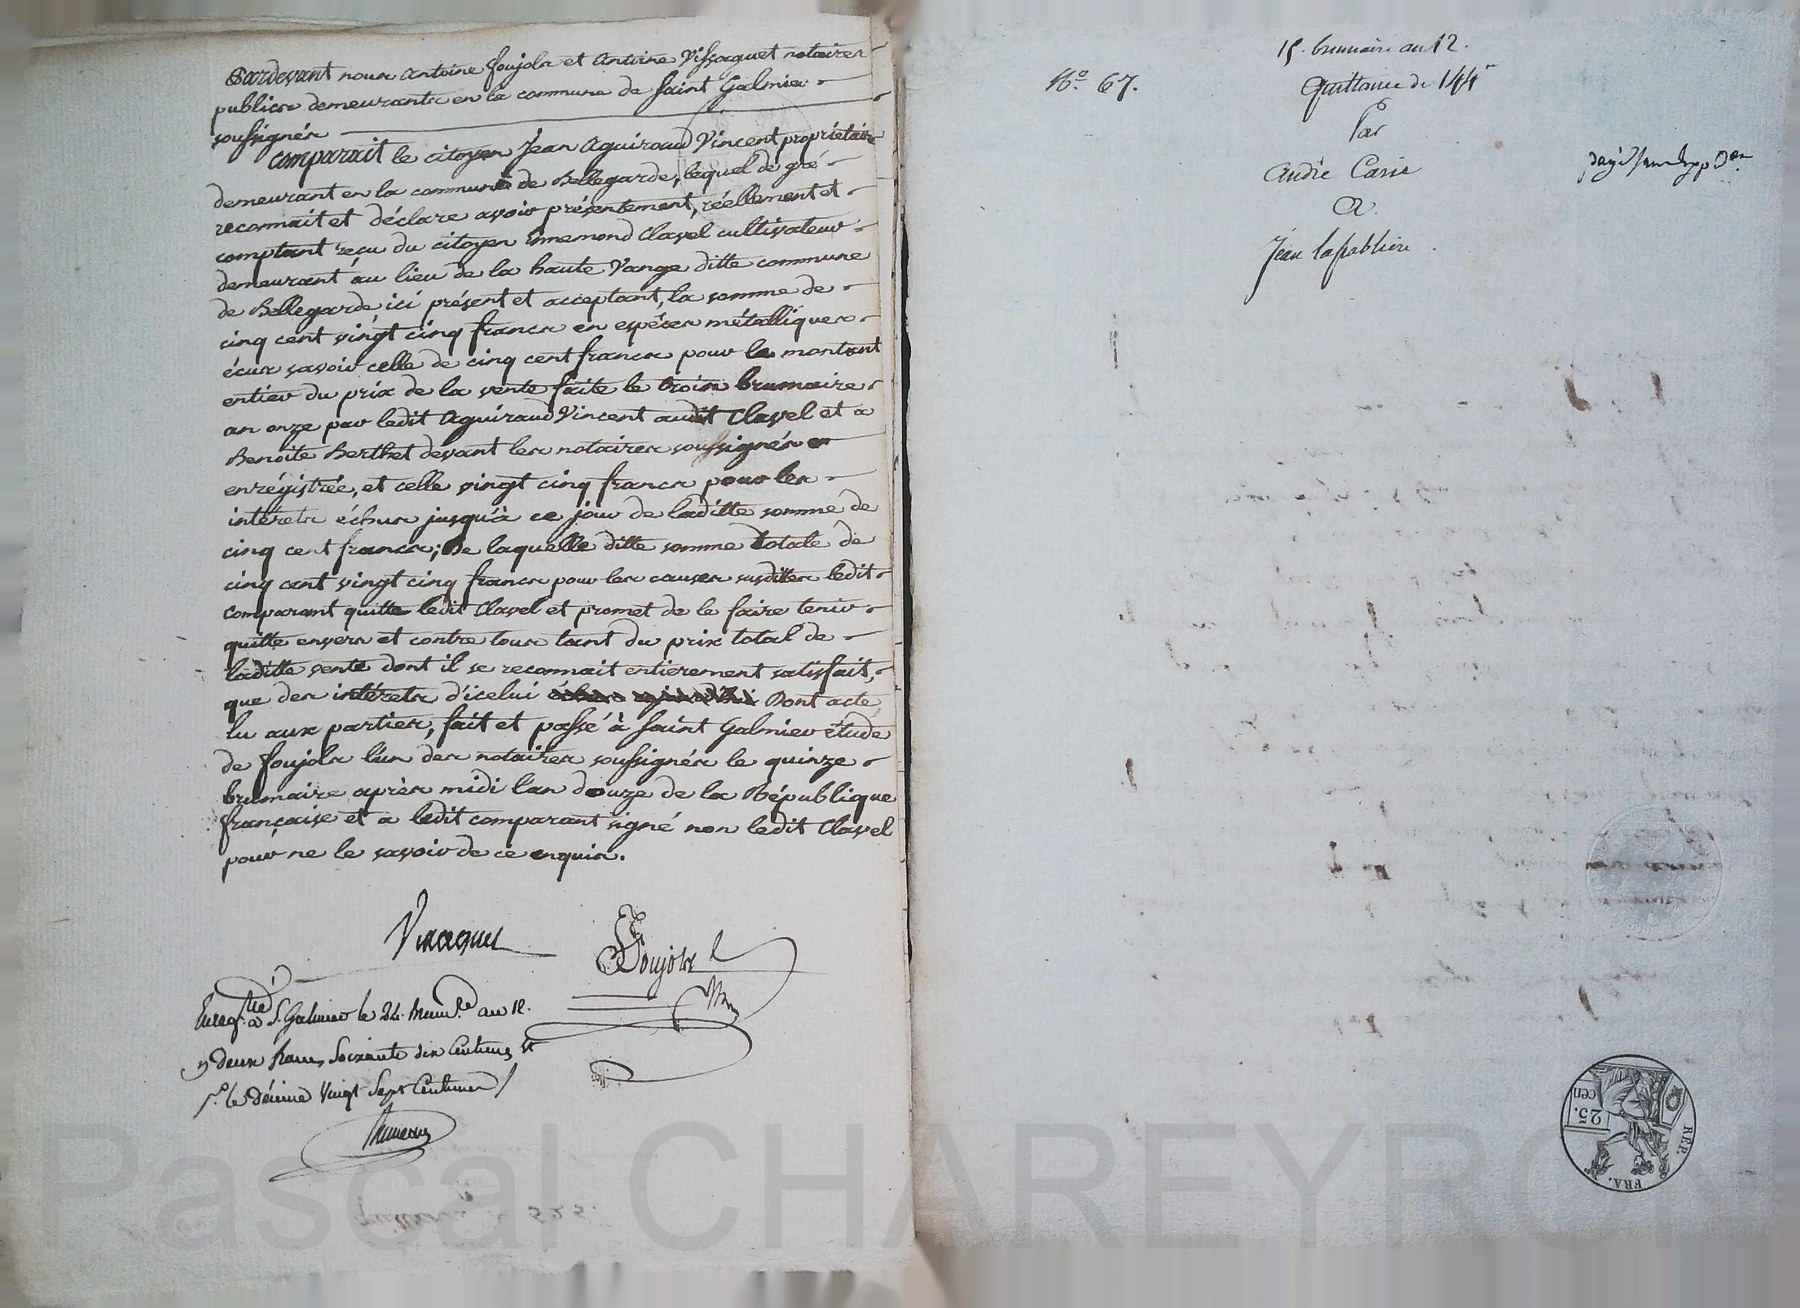 Pardevant nous Antoine Foujols et Antoine Vissaguet notaires
publics demeurants en la commune de Saint Galmier
soussignés
comparait le citoyen Jean Aguiraud Vincent propriétaire
demeurant en la commune de Bellegarde, lequel de gré
reconnait et déclare avoir présentement, réellement et
comptant reçu du citoyen Ennemond Clavel cultivateur
demeurant au lieu de la haute Vange ditte commune
de Bellegarde ici présent et acceptant, la somme de
cinq cent vingt cinq francs en espéces métalliques
écus savoir celle de cinq cent francs pour le montant
entier du prix de la vente faite le trois brumaire
an onze par ledit Aguiraud Vincent audit Clavel et a
Benoite Berthet devant les notaires soussignés
enrégistrée, et celle vingt cinq francs pour les
intérets échus jusqu'à ce jour de laditte somme de
cinq cent francs; de laquelle ditte somme totale de
cinq cent vingt cinq francs pour les causes susdittes ledit
comparant quitte ledit Clavel et promet de le faire tenir
quitte envers et contre tous tant du prix total de
laditte vente dont il se reconnait entierement satisfait,
que des intérets d'icelui Dont acte
lu aux parties, fait et passé à Saint Galmier étude
de Foujols l'un des notaires soussignés le quinze
brumaire après midi l'an douze de la République
française et a ledit comparant signé non ledit Clavel
pour ne le savoir de ce enquis.
Vissaguet
Foujols
Nre
Enregtré à St. Galmier le 24. Brum.re an 12.
deux francs Soixante dix Centimes et
pr. le décime Vingt Sept Centimes
525.
15. brumaire an 12.
No. 67.
Quittance de 144
Par
André
A.
Jean
25.
cen
REP.
FRA.
Pascal CHAREYRON